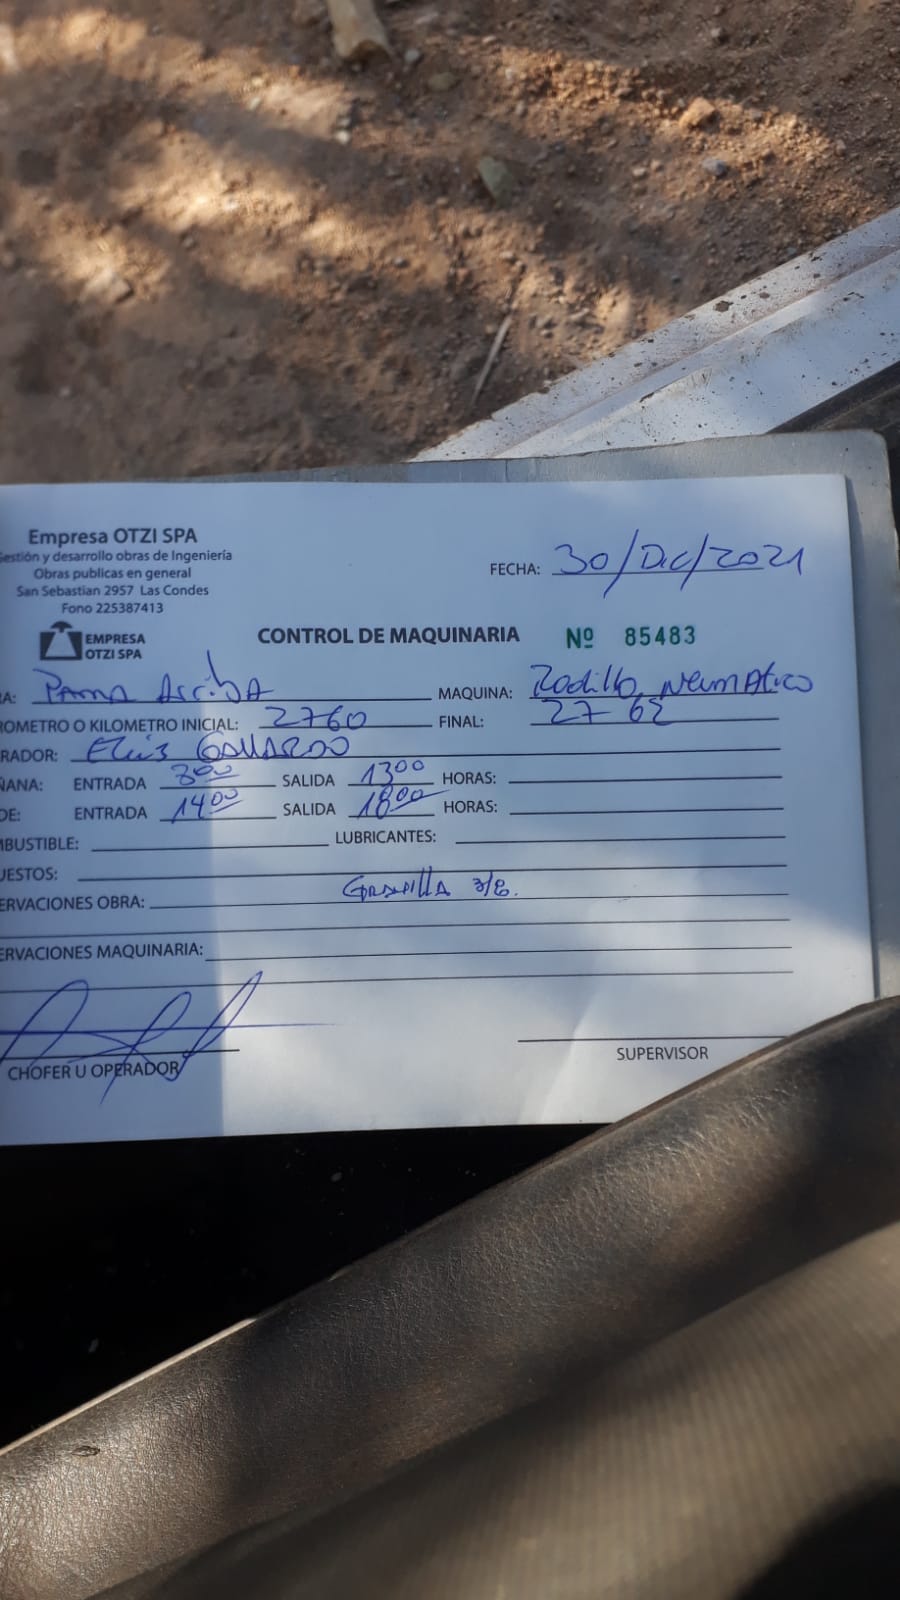 Empresa OTZI SPA
Gestión y desarrollo obras de Ingeniería
Obras publicas en general
San Sebastian 2957 Las Condes
Fono 225387413
FECHA: 30/Dic/2021
EMPRESA
OTZI SPA
CONTROL DE MAQUINARIA Nº 85483
RA: Pama Arriba MAQUINA: Rodillo Neumatico
ROMETRO O KILOMETRO INICIAL: 2760 FINAL: 27 62
RADOR: GALLARDO
ÑANA: ENTRADA 800 SALIDA 1300 HORAS:
DE: ENTRADA 1400 SALIDA 1800 HORAS:
MBUSTIBLE: LUBRICANTES:
UESTOS:
ERVACIONES OBRA: Gravilla 3/8.
ERVACIONES MAQUINARIA:
CHOFER U OPERADOR SUPERVISOR